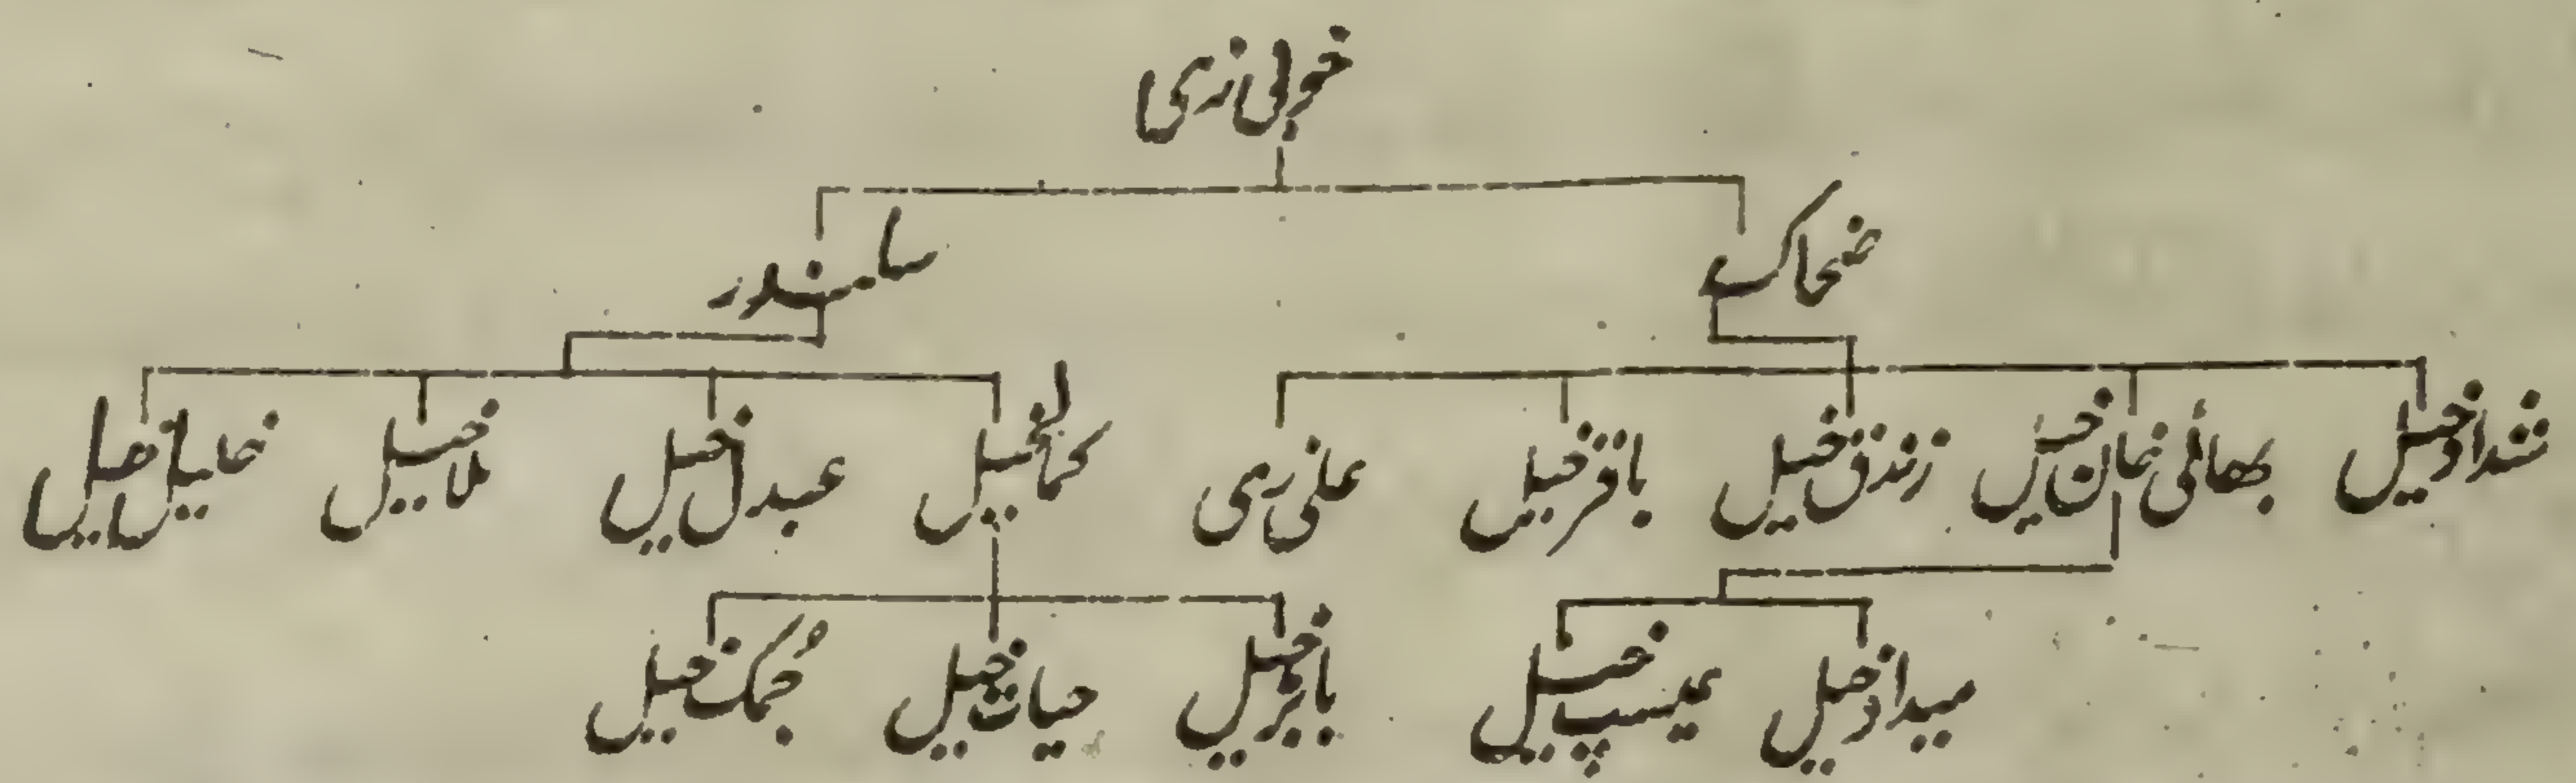 خولی زی
ضحاک
سامندر
شداد خیل
بھائی خان خیل
زندق خیل
باقر خیل
علی زی
کمال خیل
عبدل خیل
ملا خیل
خیل
میداد خیل
عیسپ خیل
بابر خیل
حیات خیل
جمک خیل